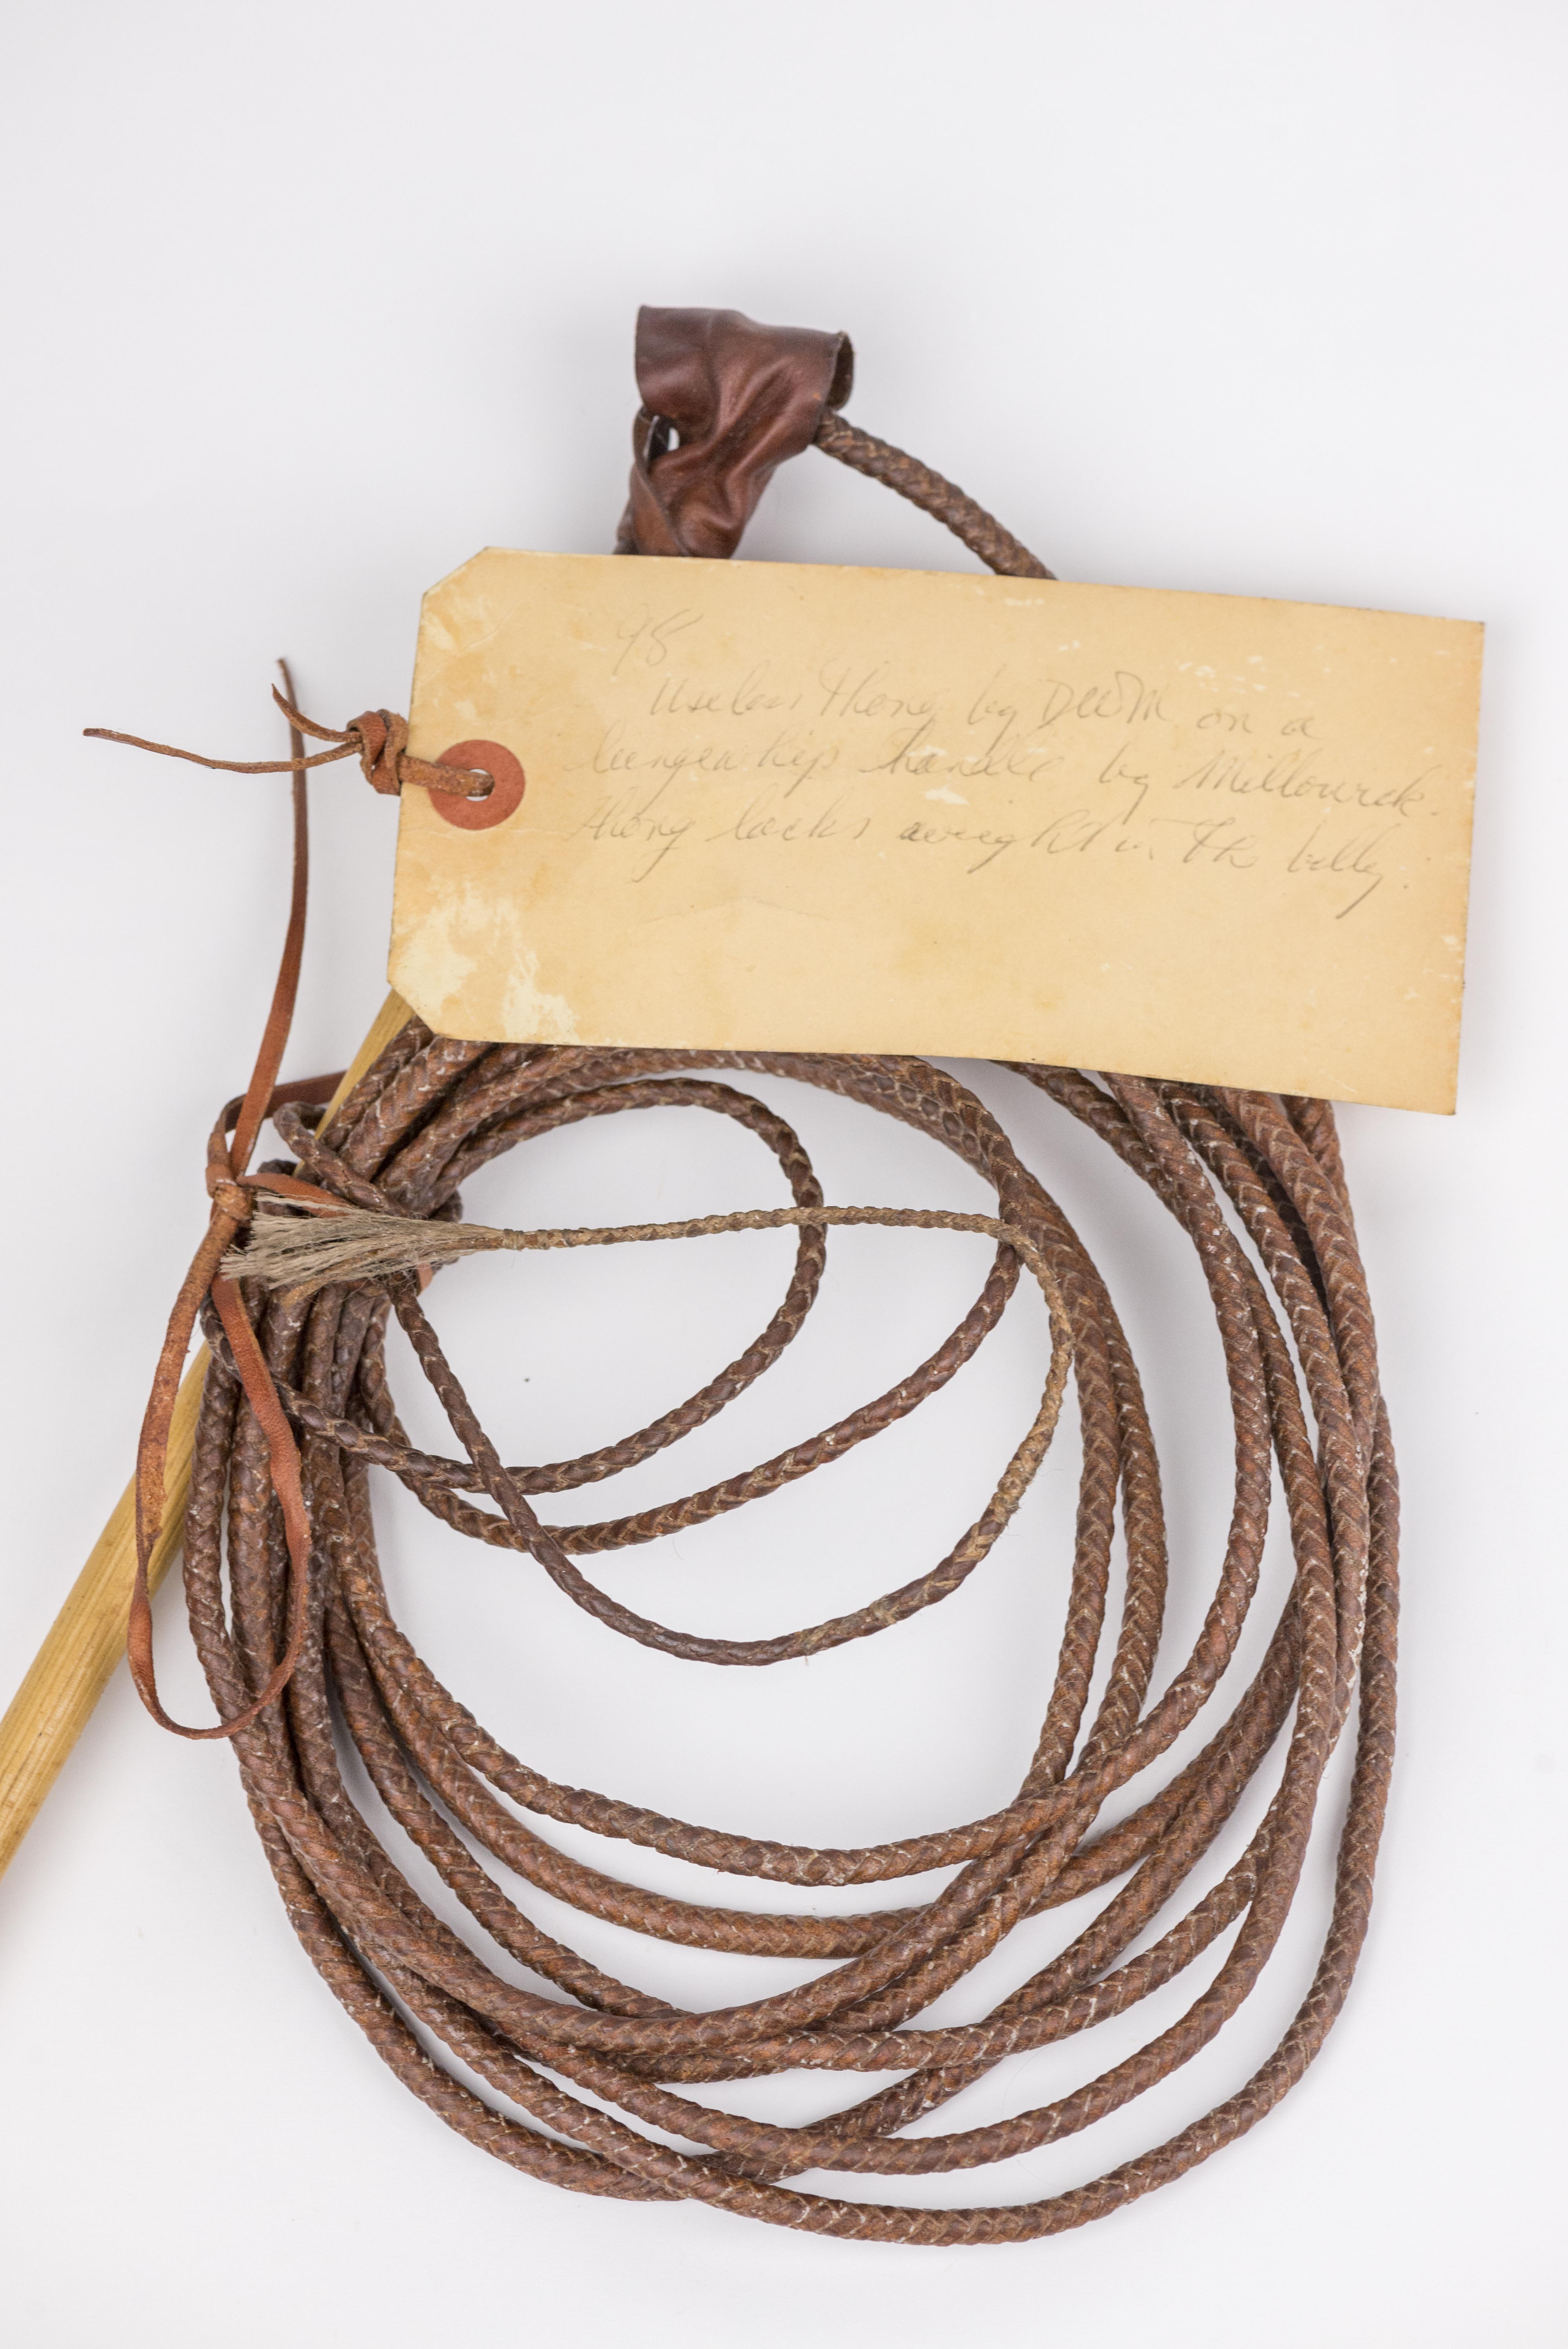 98
Useless Thong by DWM on a
lungewhip handle by Millowick.
Thong lacks weight in the belly.